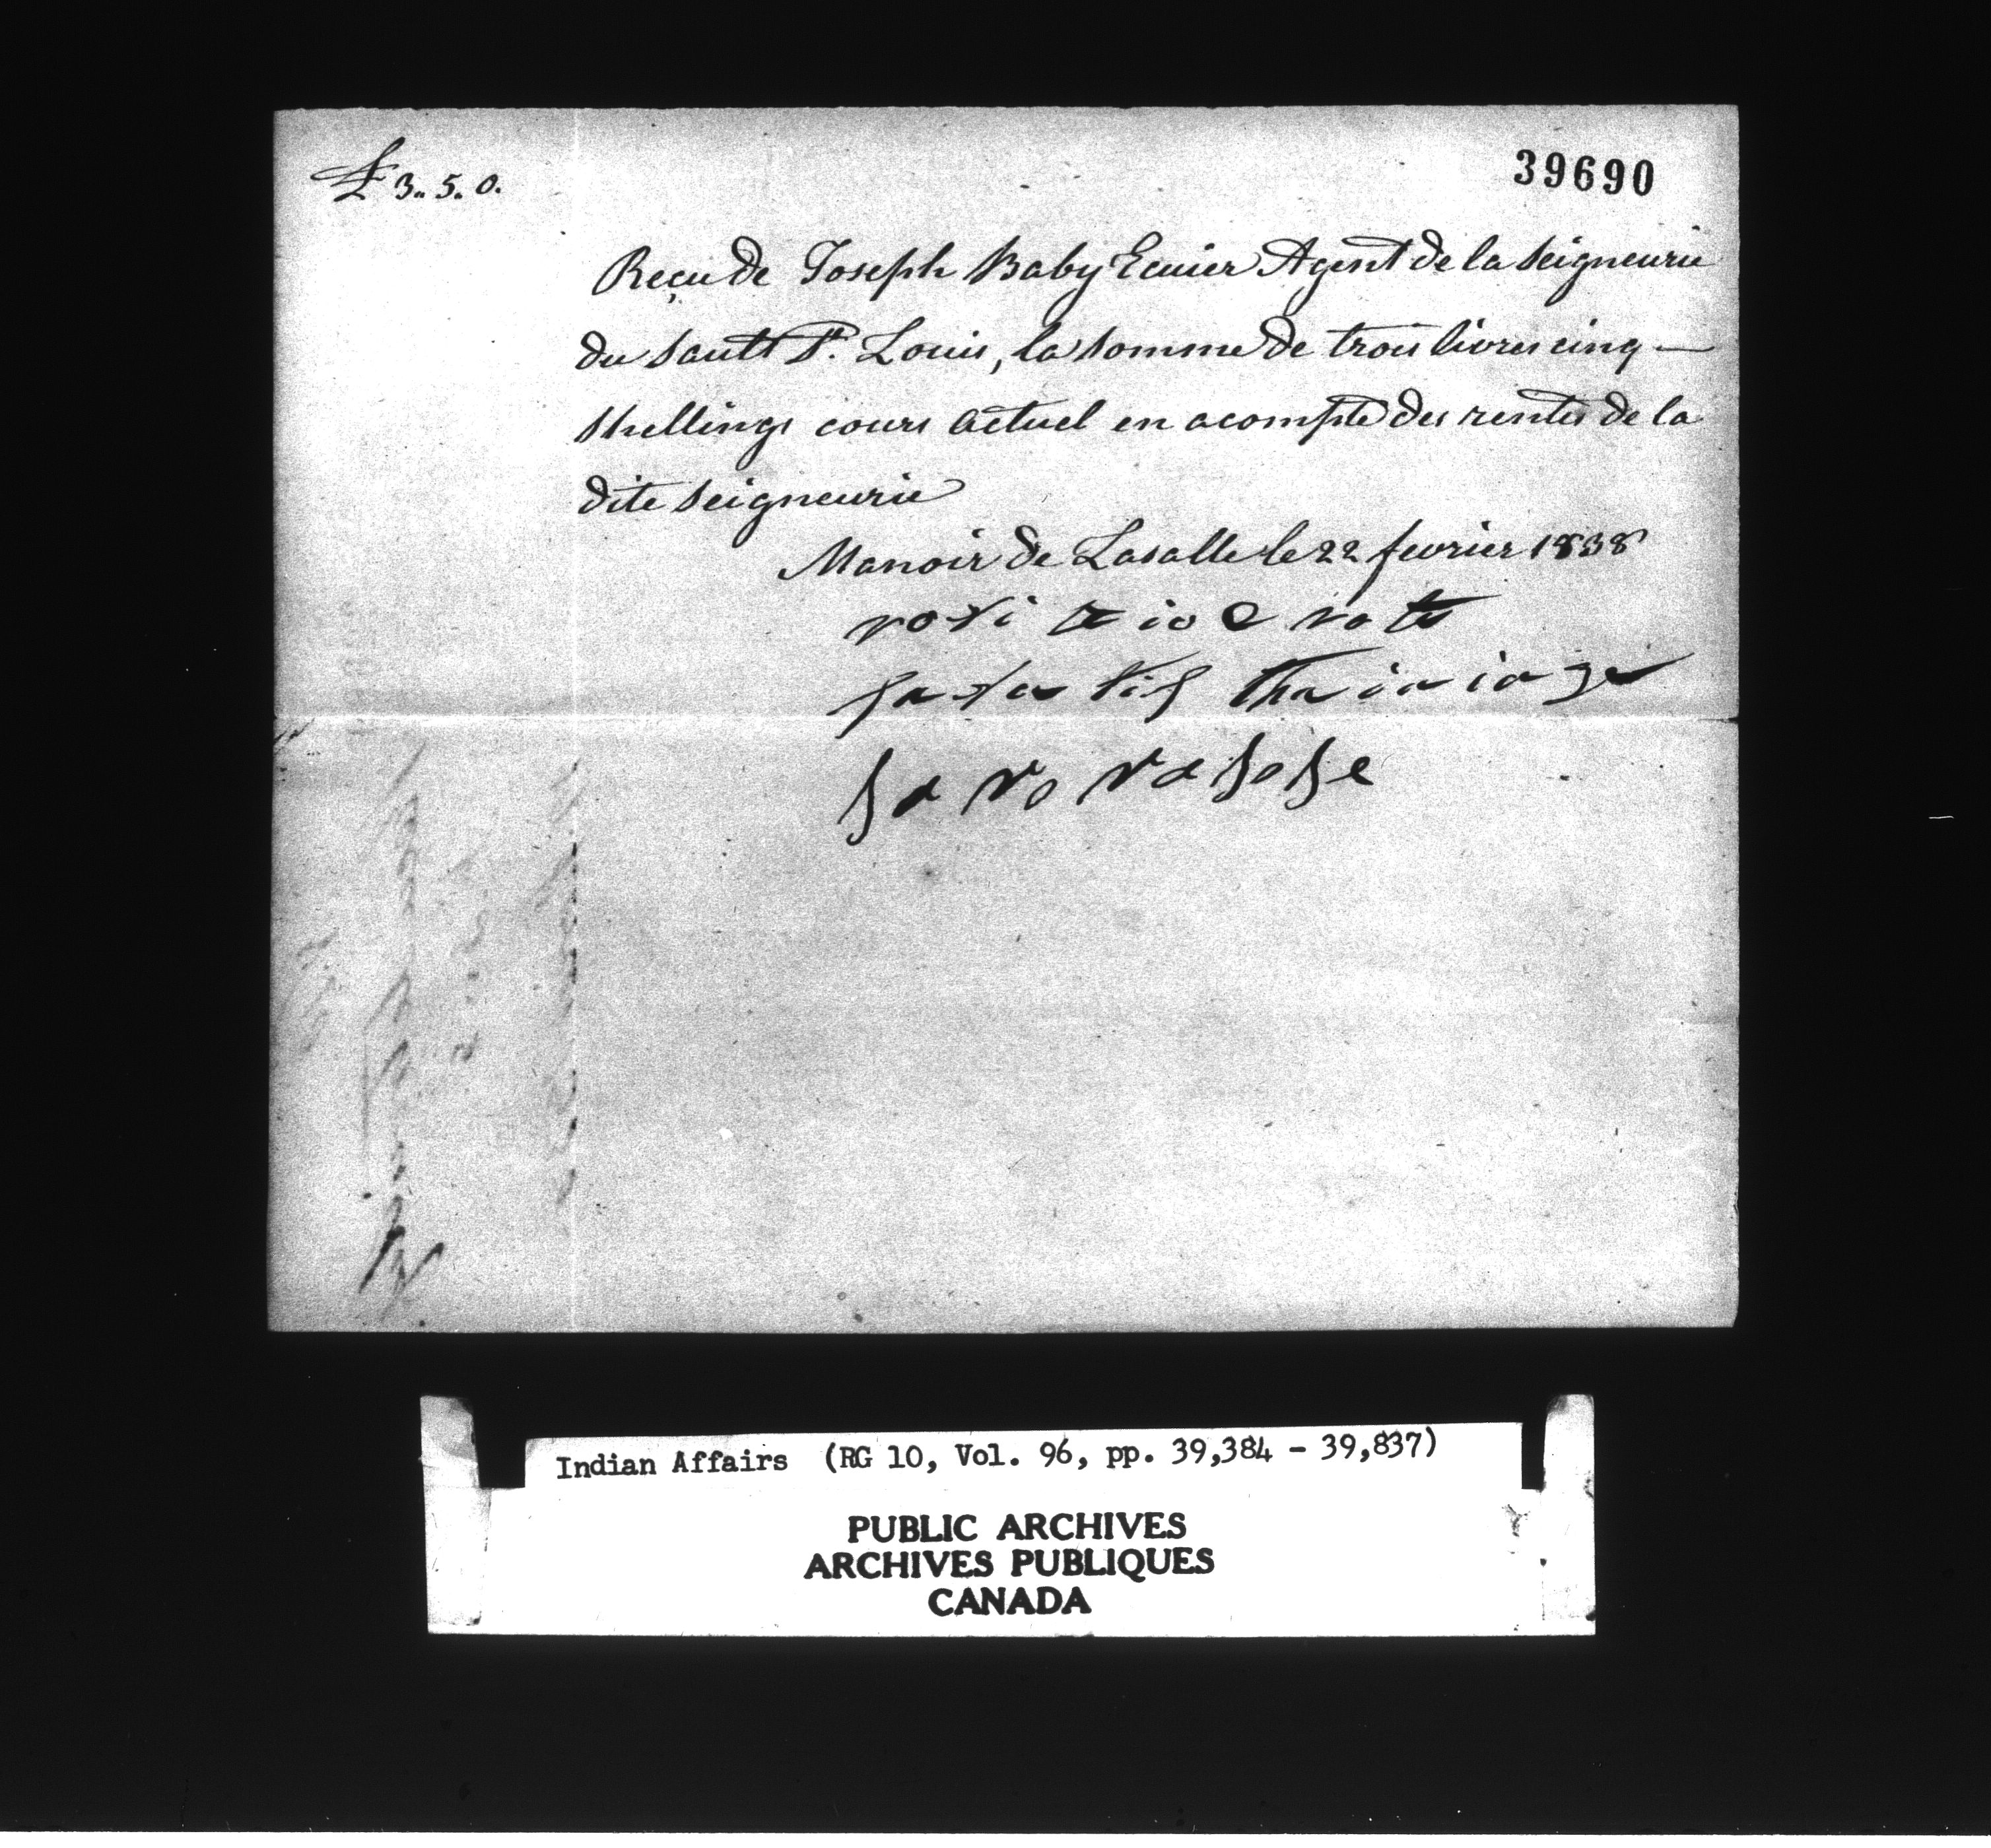 £ 3.. 5. 0.
39690
Reçu de Joseph Baby Ecuier Agent de la Seigneurie
du Sault St. Louis, la somme de trois livres cinq —
Shellings cours actuel en acompte des rentes de la
dite Seigneurie
Manoir de Lasalle le 22 fevrier 1838
Indian Affairs (RG 10, Vol. 96, pp. 39,384 - 39,837)
PUBLIC ARCHIVES
ARCHIVES PUBLIQUES
CANADA